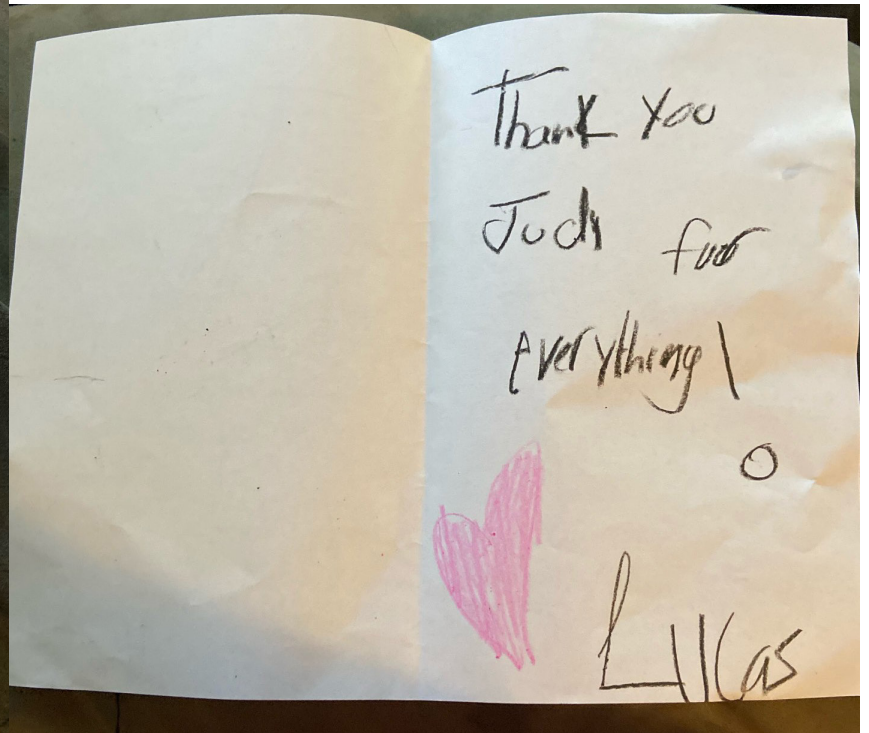 Thank You
Judy for
everything!
Lucas